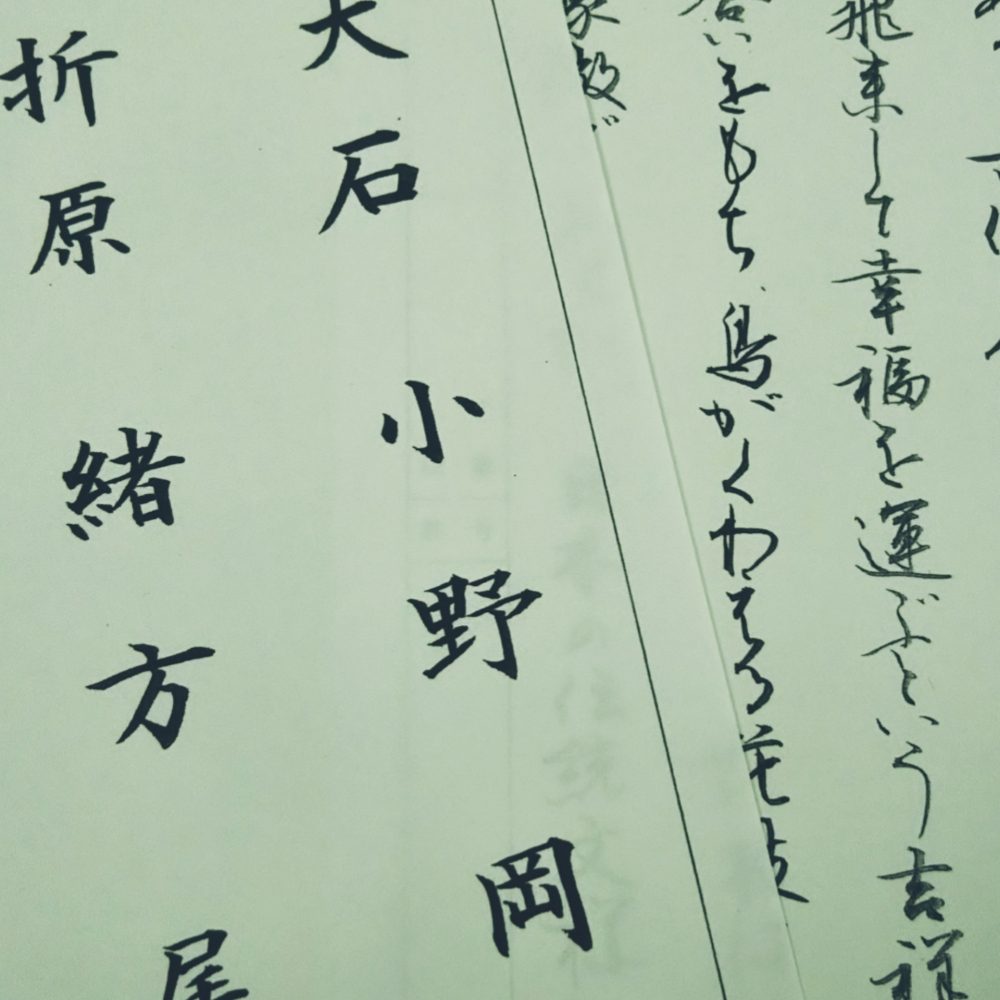 飛来して幸福を運ぶという吉祥
合いをもち、鳥がくわえる花枝
大石 小野 岡
折原 緒方 尾